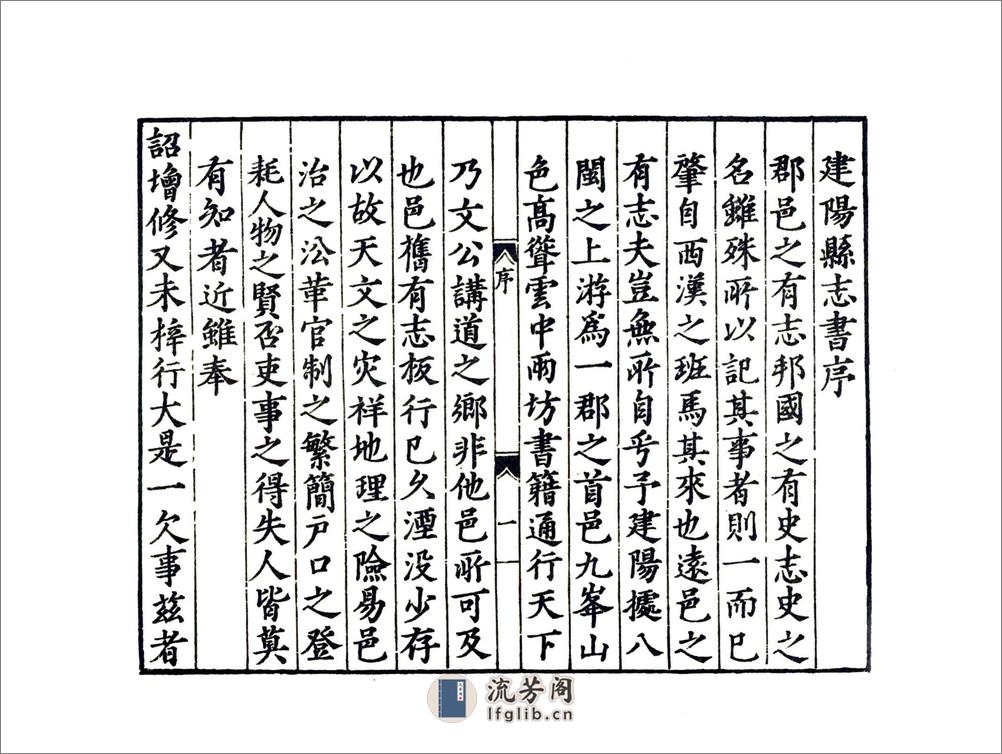 建陽縣志書序
郡邑之有志邦國之有史志史之
名雖殊所以記其事者則一而已
肇自西漢之班馬其來也遠邑之
有志夫豈無所自乎予建陽據八
閩之上游爲一郡之首邑九峯山
色高聳雲中兩坊書籍通行天下
序
一
乃文公講道之鄉非他邑所可及
也邑舊有志板行已久湮没少存
以故天文之灾祥地理之險易邑
治之沿革官制之繁簡户口之登
耗人物之賢否吏事之得失人皆莫
有知者近雖奉
詔增修又未梓行大是一欠事兹者
流芳阁
lfglib.cn